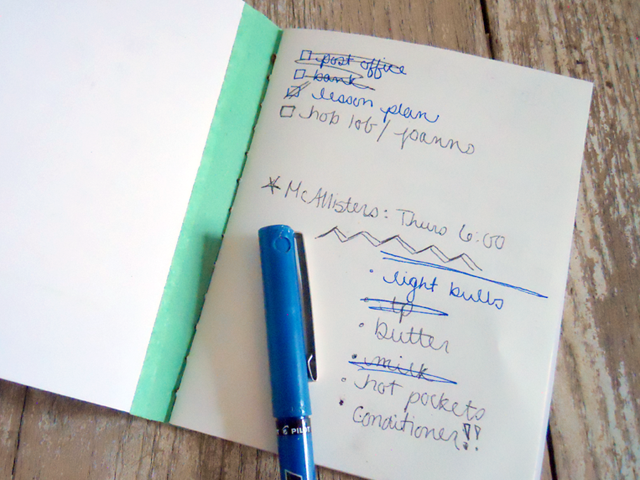 post office
bank
lesson plan
hob lob/joanns
McAllisters: Thurs 6:00
light bulbs
tp
butter
milk
hot pockets
Conditioner!!
PILOT